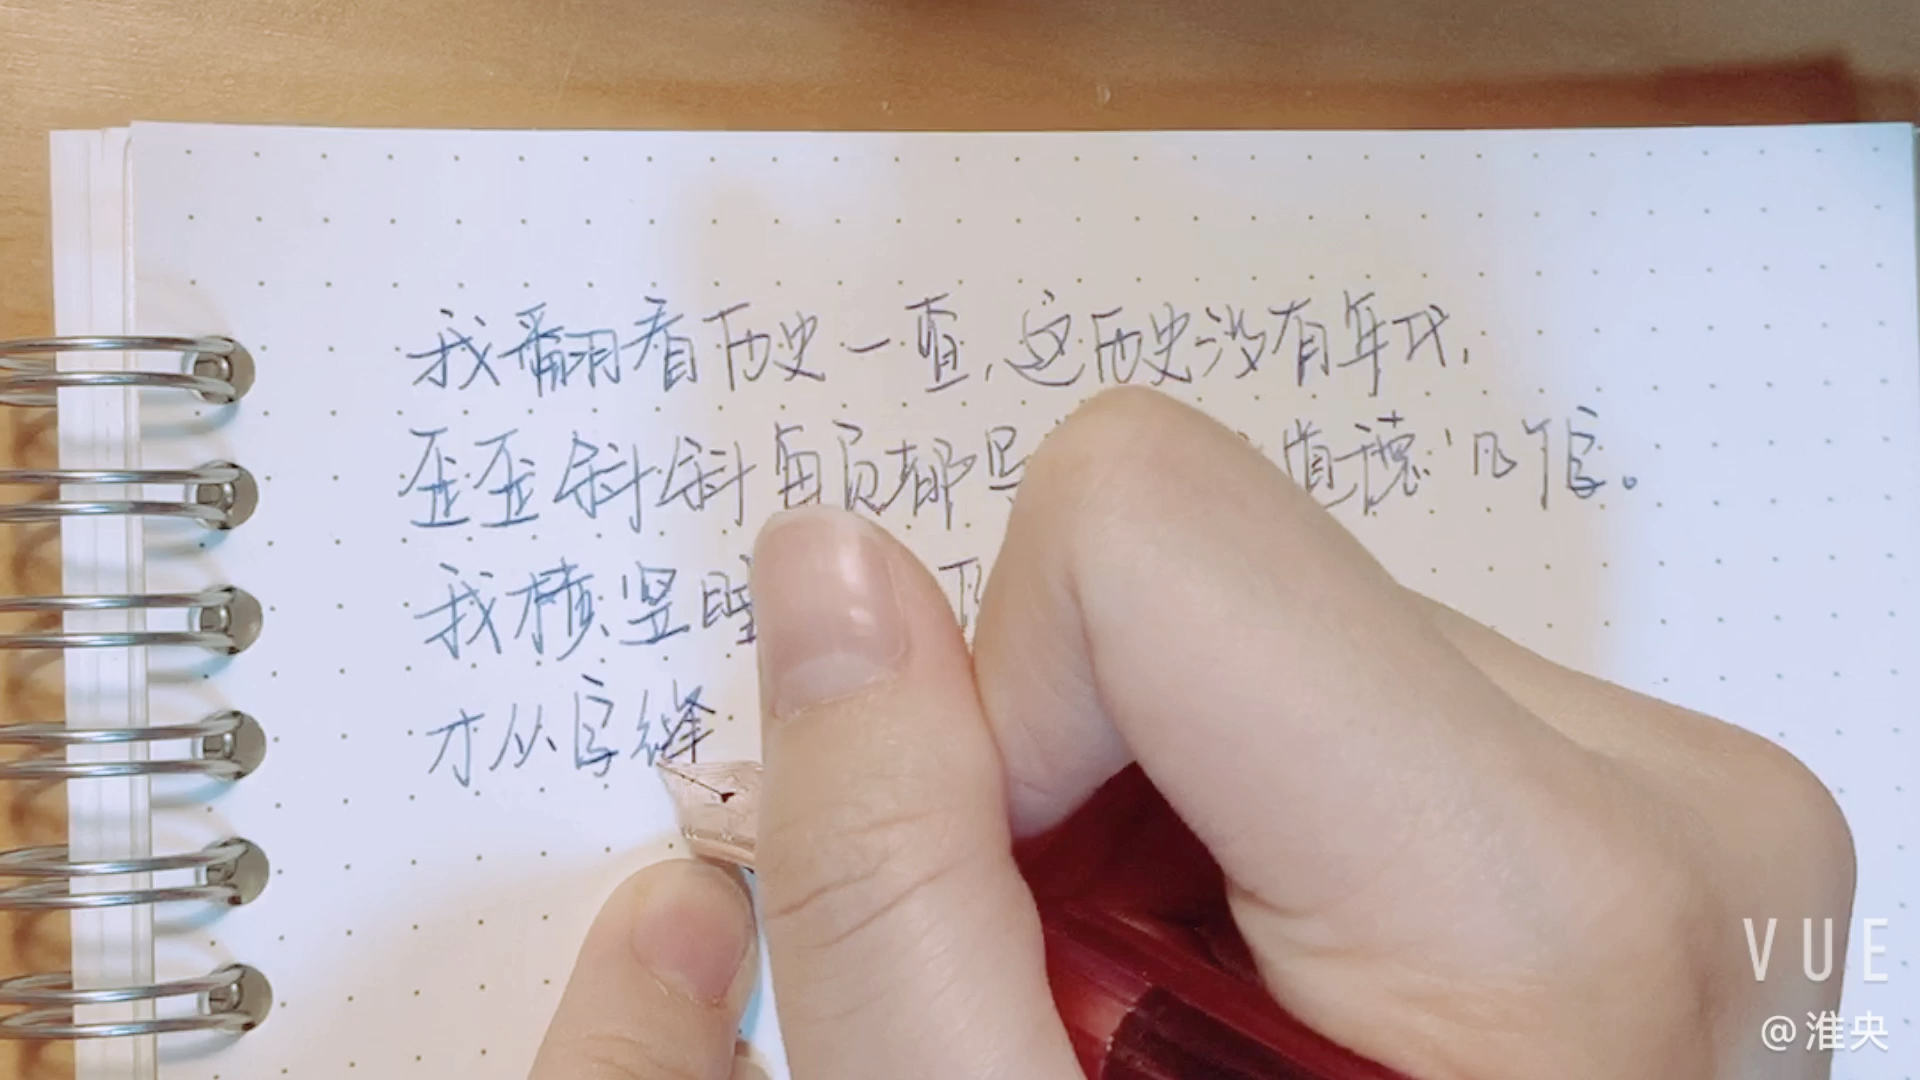 我翻看历史一查,这历史没有年代,
歪歪斜斜每页都是 道德'几个字。
我横竖睡
才从字缝
VUE
@淮央